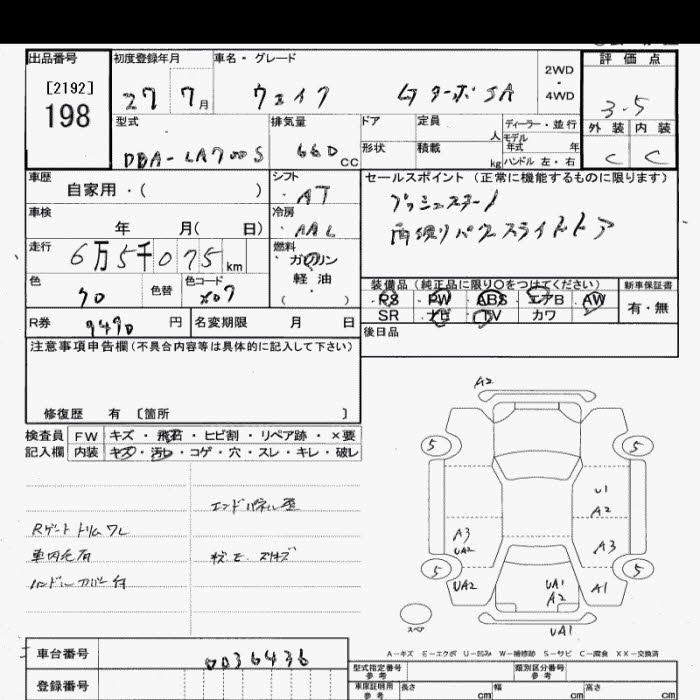 出品番号
[2192]
198
初度登録年月
27 7月
車名・グレード
ウェイク
ターボSA
2WD
・
4WD
評価点
3.5
外装 内装
C C
型式
DBA-LA700S
排気量
660cc
ドア
定員
人
形状
積載
kg
ディーラー・並行
モデル
年式 年
ハンドル 左・右
車歴
自家用・( )
シフト
AT
車検
年 月( 日)
冷房
AAC
走行
6万5千075km
燃料
ガソリン
軽油
( )
色
クロ
色替
色コード
X07
R券
9490円
名変期限 月 日
セールスポイント(正常に機能するものに限ります)
プッシュスタート
両側リパワースライドドア
装備品(純正品に限り〇をつけてください)
新車保証書
PS PW ABS エアB AW
有・無
SR ナビ TV カワ
後日品
注意事項申告欄(不具合内容等は具体的に記入して下さい)
修復歴 有 〔箇所 〕
検査員
記入欄
FW キズ・飛石・ヒビ割・リペア跡・×要
内装 キズ・汚レ・コゲ・穴・スレ・キレ・破レ
エンドパネル歪
Rゲートトリムワレ
車内毛有
ハンドルカバー付
A2
5
5
U1
A2
A3
UA2
A3
5
5
UA2
UA1
A2
A1
UA1
スペア
A-キズ E-エクボ U-凹み W-補修跡 S-サビ C-腐食 XX-交換済
車台番号
0036436
登録番号
型式指定番号
参考
類別区分番号
参考
車庫証明用
参考
長さ cm
幅 cm
高さ cm